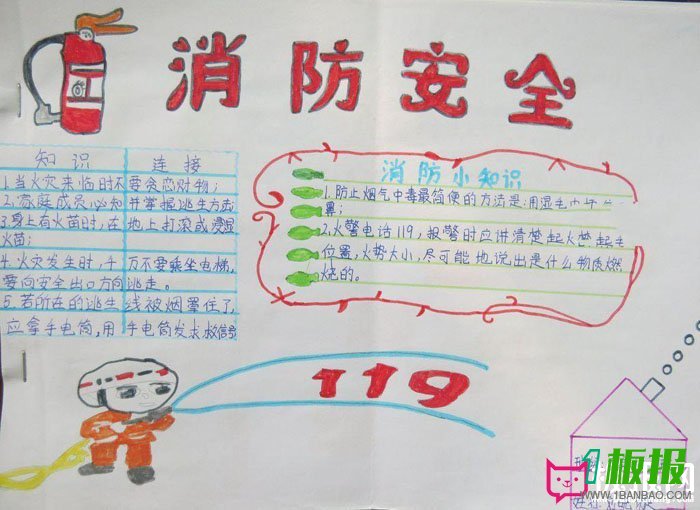 消防安全
知识 连接
1.当火灾来临时不要贪恋财物;
2.家庭成员必知并掌握逃生方法
3.身上有火苗时,在地上打滚或浸湿
火苗;
4.火灾发生时,千万不要乘坐电梯,
要向安全出口方向逃走。
5.若所在的逃生线被烟罩住了,
应拿手电筒,用手电筒发求救信号
消防小知识
1.防止烟气中毒最简便的方法是:用湿毛巾
鼻;
2.火警电话119,报警时应讲清楚起火
位置,火势大小,尽可能地说出是什么物质燃
烧的。
119
1板报
WWW.1BANBAO.COM